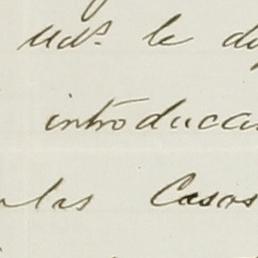 Uds. le di
introducci
las Casas